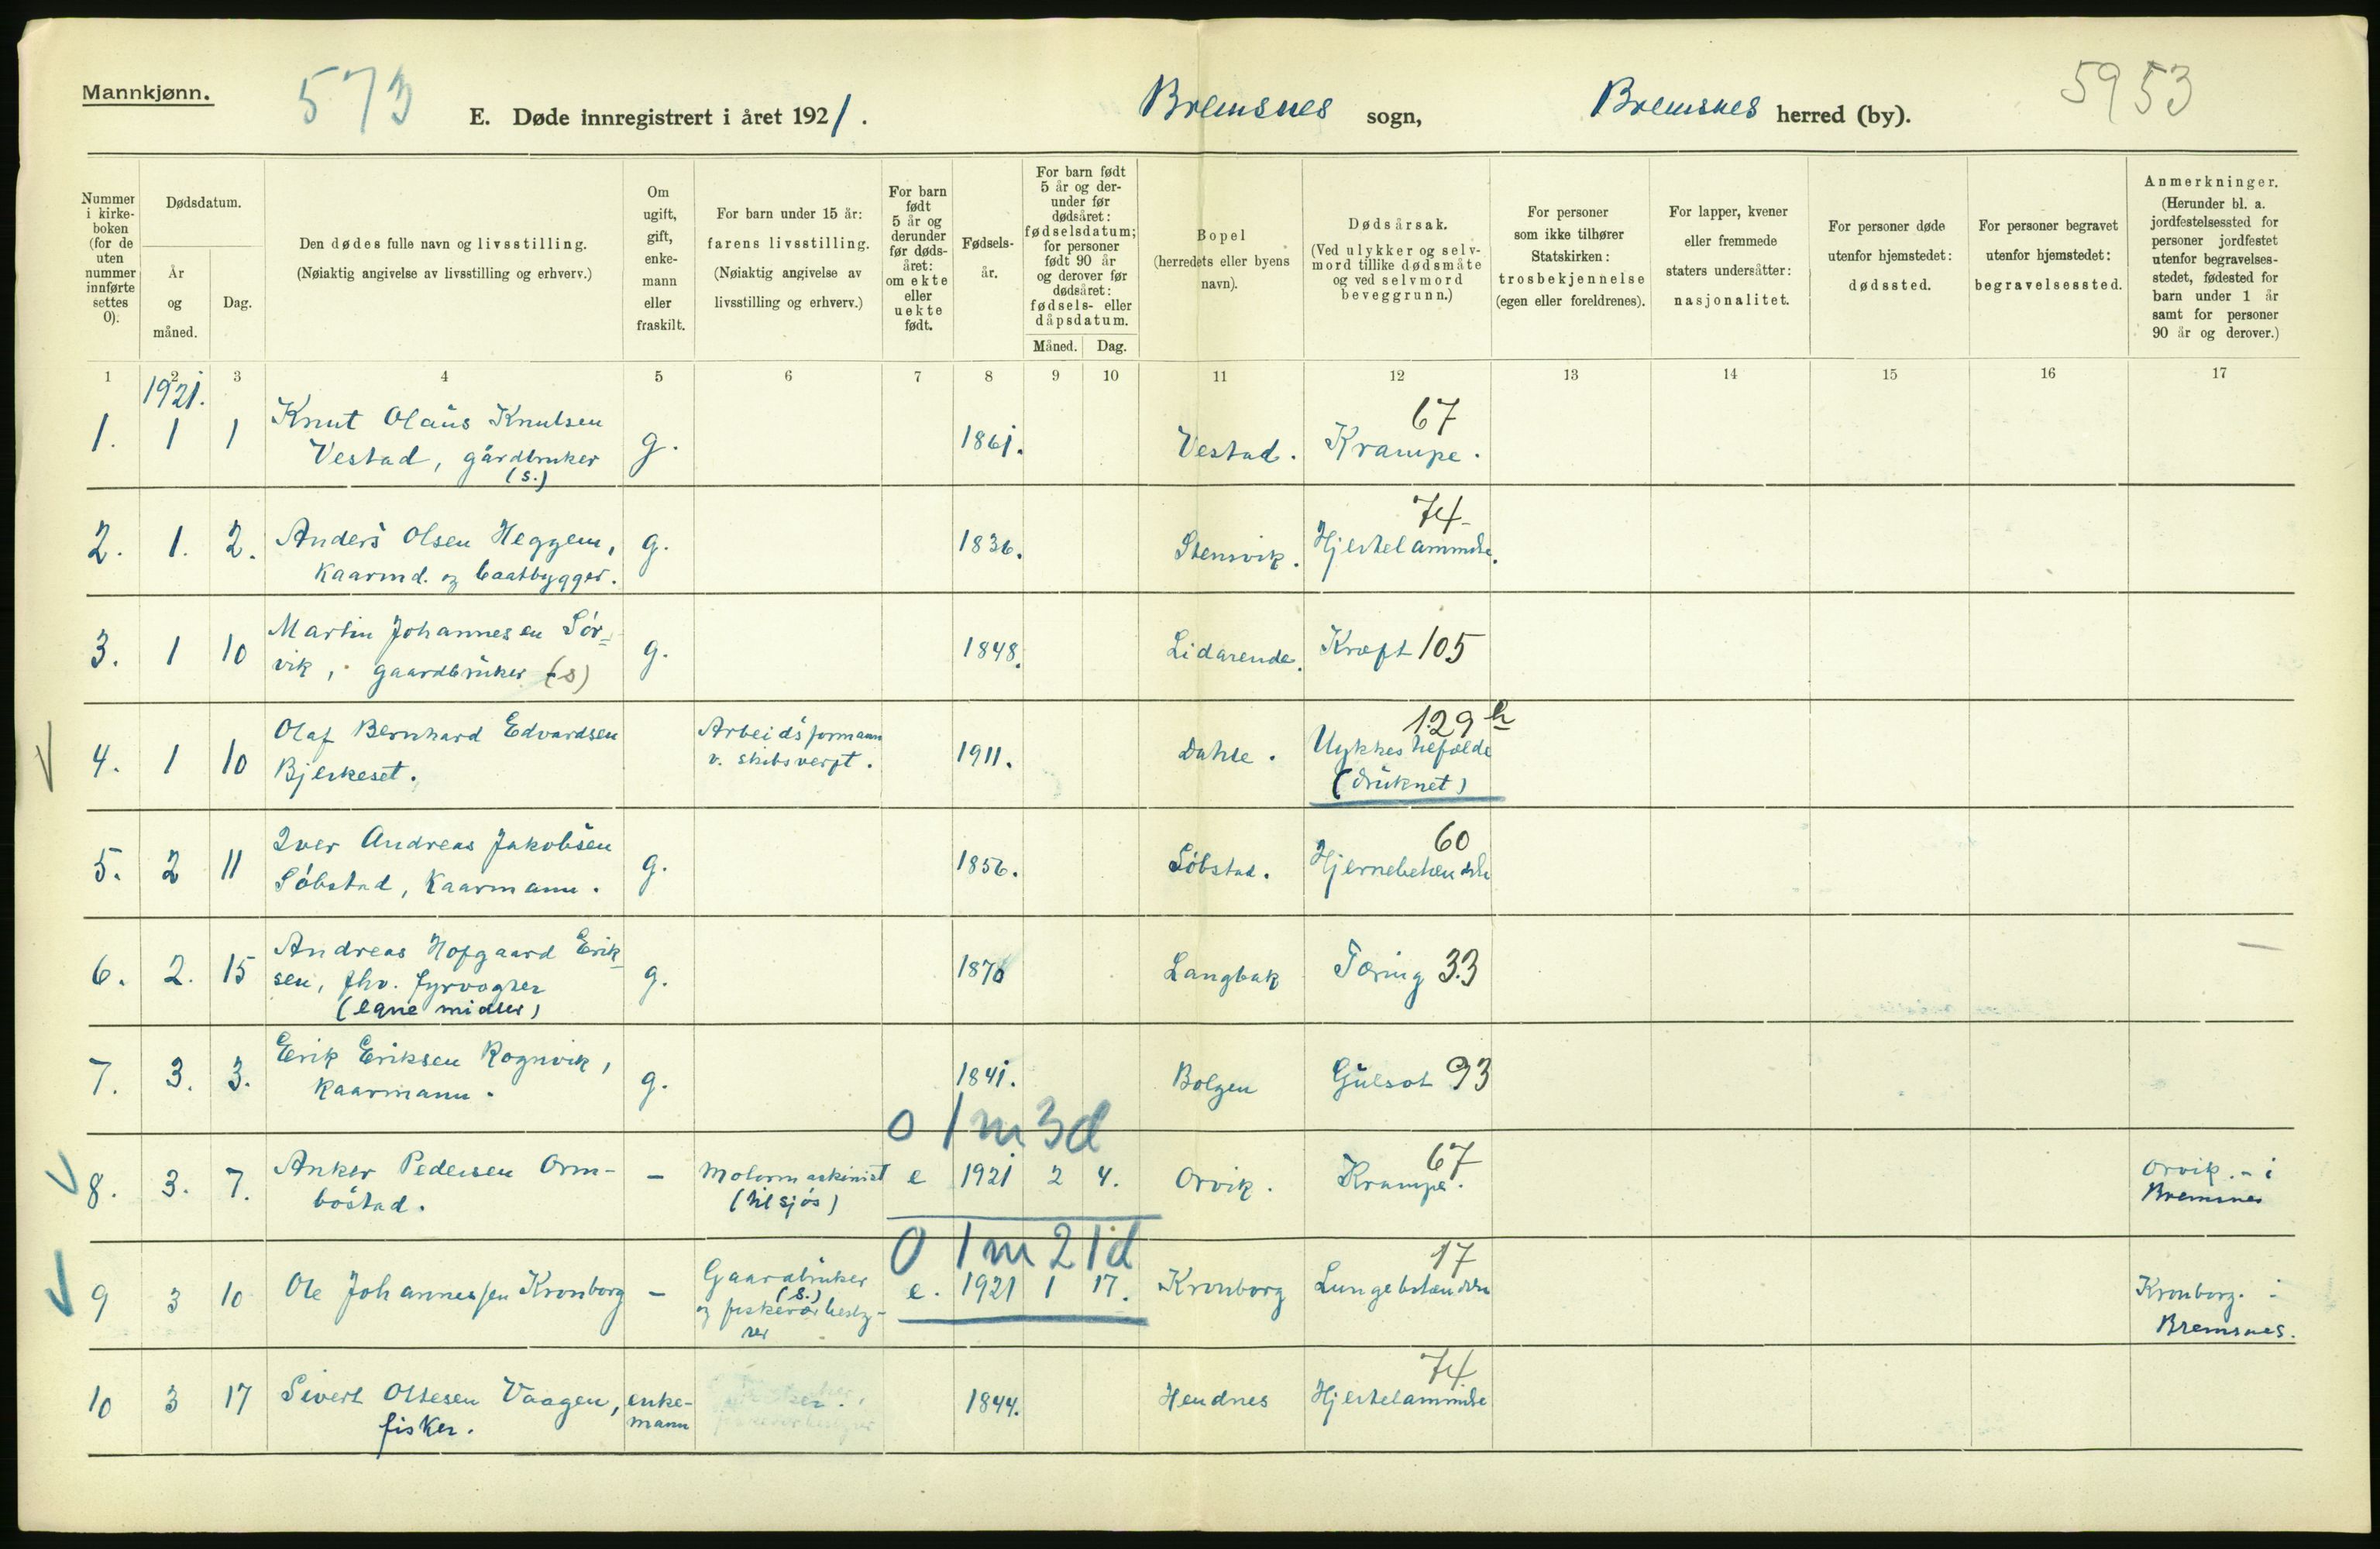 Mannkjønn.
573
E. Døde innregistrert i året 1921.
Bremsnes sogn,
Bremsnes herred (by).
5953
Nummer i kirke- boken (for de uten nummer innførte settes 0).
Dødsdatum.
År og måned.
Dag.
Den dødes fulle navn og livsstilling.
(Nøiaktig angivelse av livsstilling og erhverv.)
Om ugift, gift, enke- mann eller fraskilt.
For barn under 15 år:
farens livsstilling.
(Nøiaktig angivelse av
livsstilling og erhverv.)
For barn født 5 år og derunder før døds- året: om ekte eller uekte født.
Fødsels- år.
For barn født 5 år og der- under før dødsåret: fødselsdatum; for personer født 90 år og derover før dødsåret: fødsels- eller dåpsdatum.
Måned.
Dag.
Bopel
(herredets eller byens
navn).
Dødsårsak.
(Ved ulykker og selv- mord tillike dødsmåte og ved selvmord beveggrunn.)
For personer som ikke tilhører Statskirken: trosbekjennelse (egen eller foreldrenes).
For lapper, kvener eller fremmede staters undersåtter: nasjonalitet.
For personer døde utenfor hjemstedet: dødssted.
For personer begravet utenfor hjemstedet: begravelsessted.
Anmerkninger.
(Herunder bl. a. jordfestelsessted for personer jordfestet utenfor begravelses- stedet, fødested for barn under 1 år samt for personer 90 år og derover.)
1 2 3 4 5 6 7 8 9 10 11 12 13 14 15 16 17
1921.
1. 1 1 Knut Olaus Knutsen
Vestad, gårdbruker
(s.)
g. 1861. Vestad. 67
Krampe.
2. 1. 2. Anders Olsen Heggem,
Kaarmd. og baatbygger.
g. 1836. Stensvik. 74
Hjertelammelse.
3. 1 10 Martin Johannesen Sør-
vik, gaardbruker (s)
g. 1848. Lidarende. Kræft 105
4. 1 10 Olaf Bernhard Edvardsen
Bjerkeset.
Arbeidsformann
v. skibsverft.
1911. Dahle. 129 h
Ulykkestilfælde
(druknet)
5. 2 11 Iver Andreas Jakobsen
Søbstad, Kaarmann.
g. 1856. Søbstad. 60
Hjernebetendelse
6. 2. 15 Andreas Hofgaard Erik-
sen, fhv. fyrvogter
(egne midler)
g. 1870 Langbak Tæring 33
7. 3. 3. Erik Eriksen Rognvik,
Kaarmann.
g. 1841. Bolgen Gulsot 93
0 1m 3d
8. 3. 7. Anker Pedersen Orm-
bostad.
- Motormaskinist
(til sjøs)
e 1921 2 4. Orvik. 67
Krampe.
Orvik. - i
Bremsnes
0 1m 21d
9 3 10 Ole Johannessen Kronborg - Gaardbruker
(s.)
e. 1921 1 17. Kronborg 17
Lungebetændelse
Kronborg. -
Bremsnes.
10 3 17 Sivert Oltesen Vaagen,
fisker.
enke-
mann
1844. Hendnes 74
Hjertelammelse